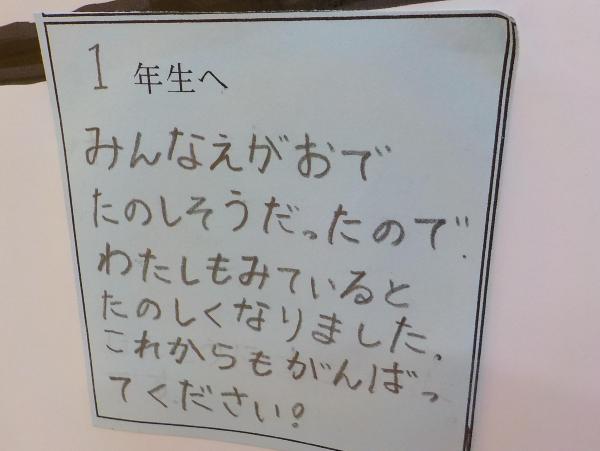 1 年生へ
みんなえがおで
たのしそうだったので、
わたしもみていると
たのしくなりました。
これからもがんばっ
てください!